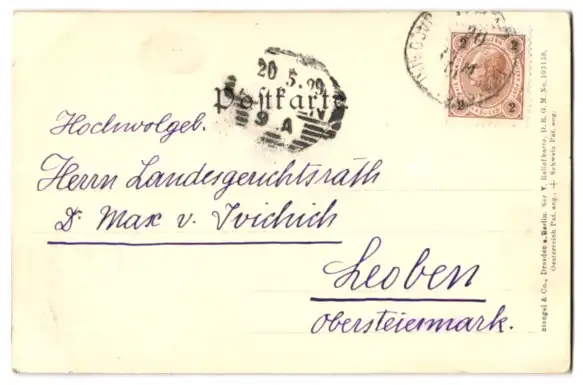 20
20.5.99
Postkarte
9 A
2 2
2 2
Hochwolgeb.
Herrn Landesgerichtsrath
Dr Max v.
Leoben
Obersteiermark.
Stengel & Co., Dresden u. Berlin. Ser V. Reliefkarte, D. R. G. M. No. 103139.
Oesterreich Pat. ang., + Schweiz Pat. ang.